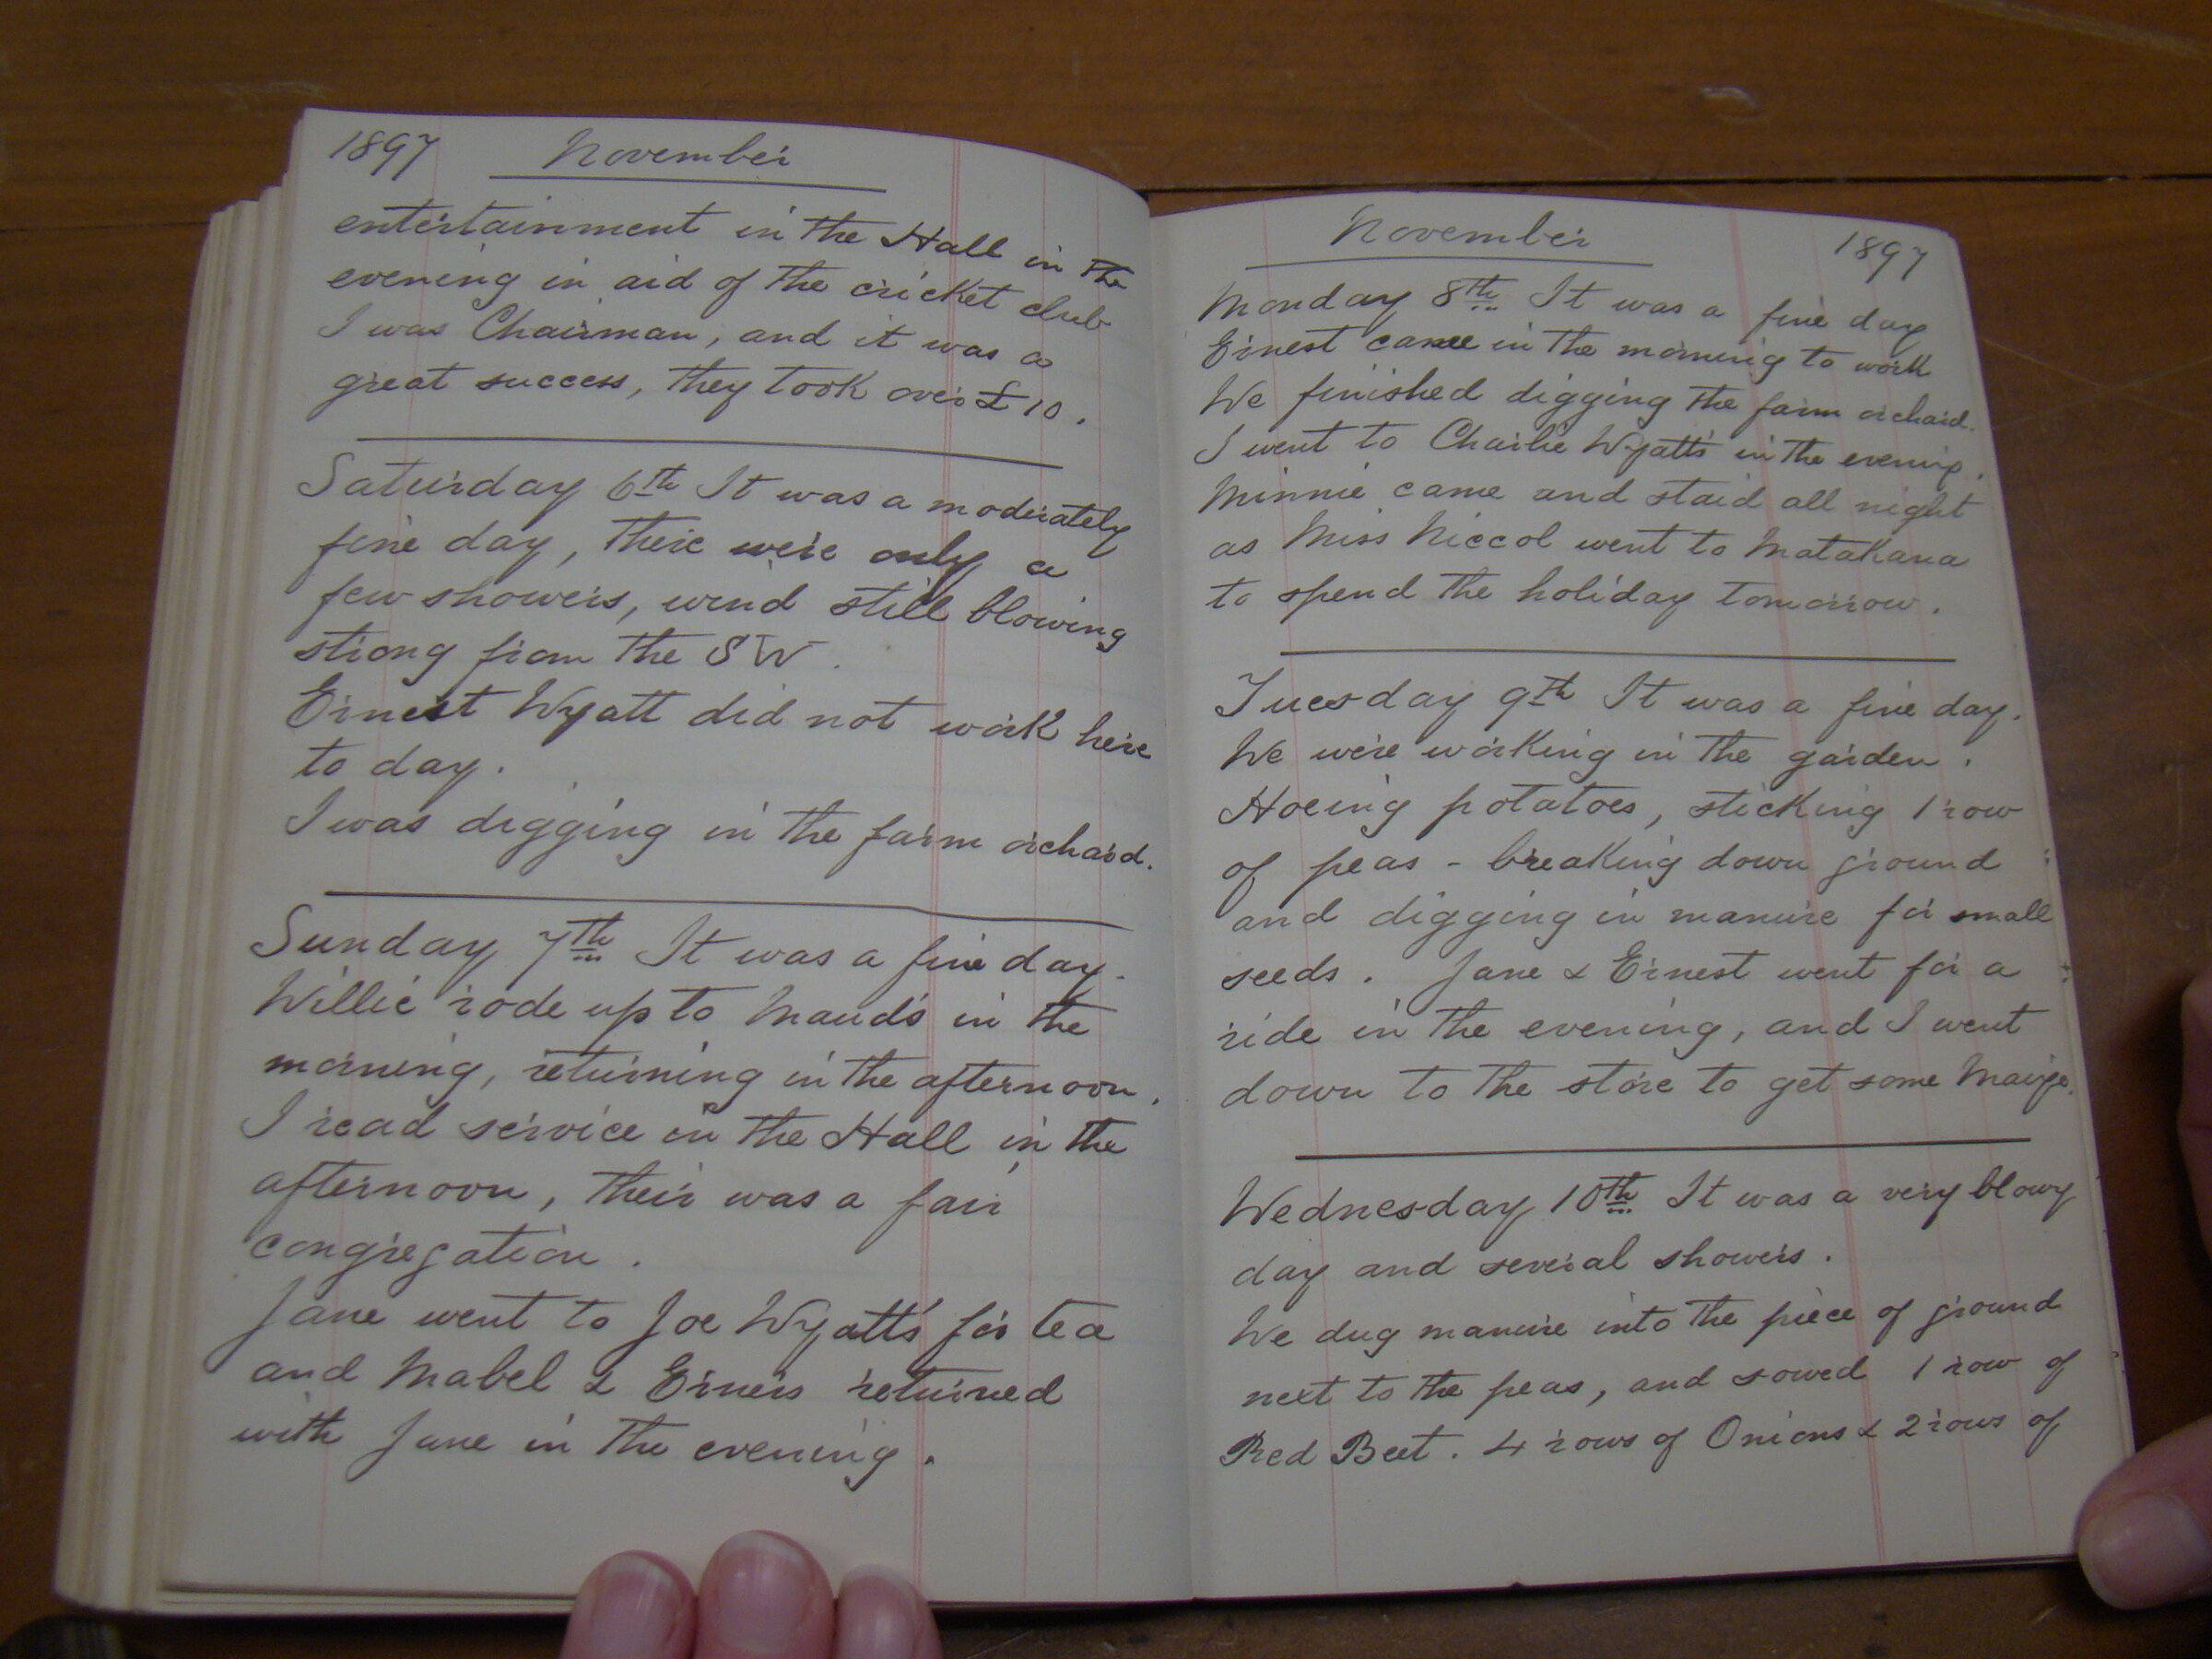 1897 November
entertainment in the Hall in the
evening in aid of the cricket club
I was Chairman, and it was a
great success, they took over £10.
Saturday 6th It was a moderately
fine day, there were only a
few showers, wind still blowing
strong from the SW.
Ernest Wyatt did not work here
to day.
I was digging in the farm orchard.
Sunday 7th It was a fine day.
Willie rode up to Maud's in the
morning, returning in the afternoon.
I read service in the Hall in the
afternoon, their was a fair
congregation.
Jane went to Joe Wyatt's for tea
and Mabel & returned
with Jane in the evening.
November 1897
Monday 8th It was a fine day
Ernest came in the morning to work
We finished digging the farm orchard.
I went to Charlie Wyatt's in the evening.
Minnie came and staid all night
as Miss Niccol went to Matakana
to spend the holiday tomorrow.
Tuesday 9th It was a fine day.
We were working in the garden.
Hoeing potatoes, sticking 1 row
of peas - breaking down ground
and digging in manure for small
seeds. Jane & Ernest went for a
ride in the evening, and I went
down to the store to get some
Wednesday 10th It was a very blowy
day and several showers.
We dug manure into the piece of ground
next to the peas, and sowed 1 row of
Red Beet. 4 rows of Onions & 2 rows of